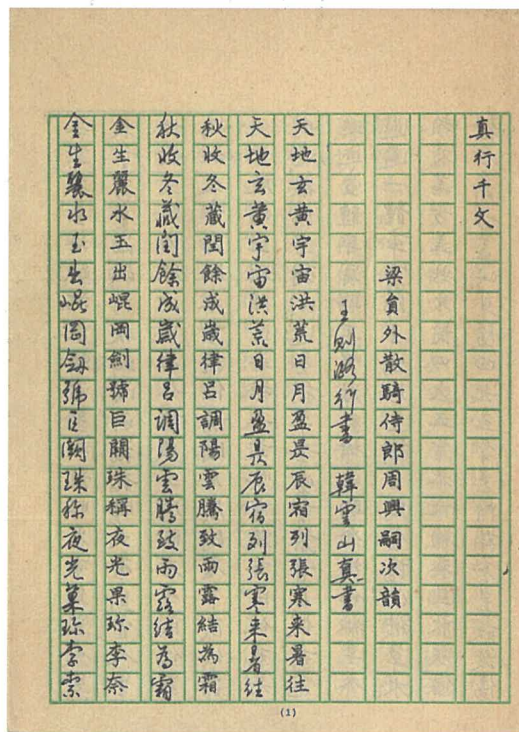 真行千文
梁負外散騎侍郎周興嗣次韻
王則潞行書 韓雲山真書
天地玄黄宇宙洪荒日月盈昃辰宿列張寒来暑往
天地玄黄宇宙洪荒日月盈昃辰宿列張寒来暑往
秋收冬蔵閏餘成歲律呂調陽雲騰致雨露結為霜
秋收冬蔵閏餘成歲律呂調陽雲騰致雨露結為霜
金生麗水玉出崐岡劍號巨闕珠稱夜光果珎李奈
金生麗水玉出崐岡劒號巨闕珠称夜光菓珎李柰
(1)